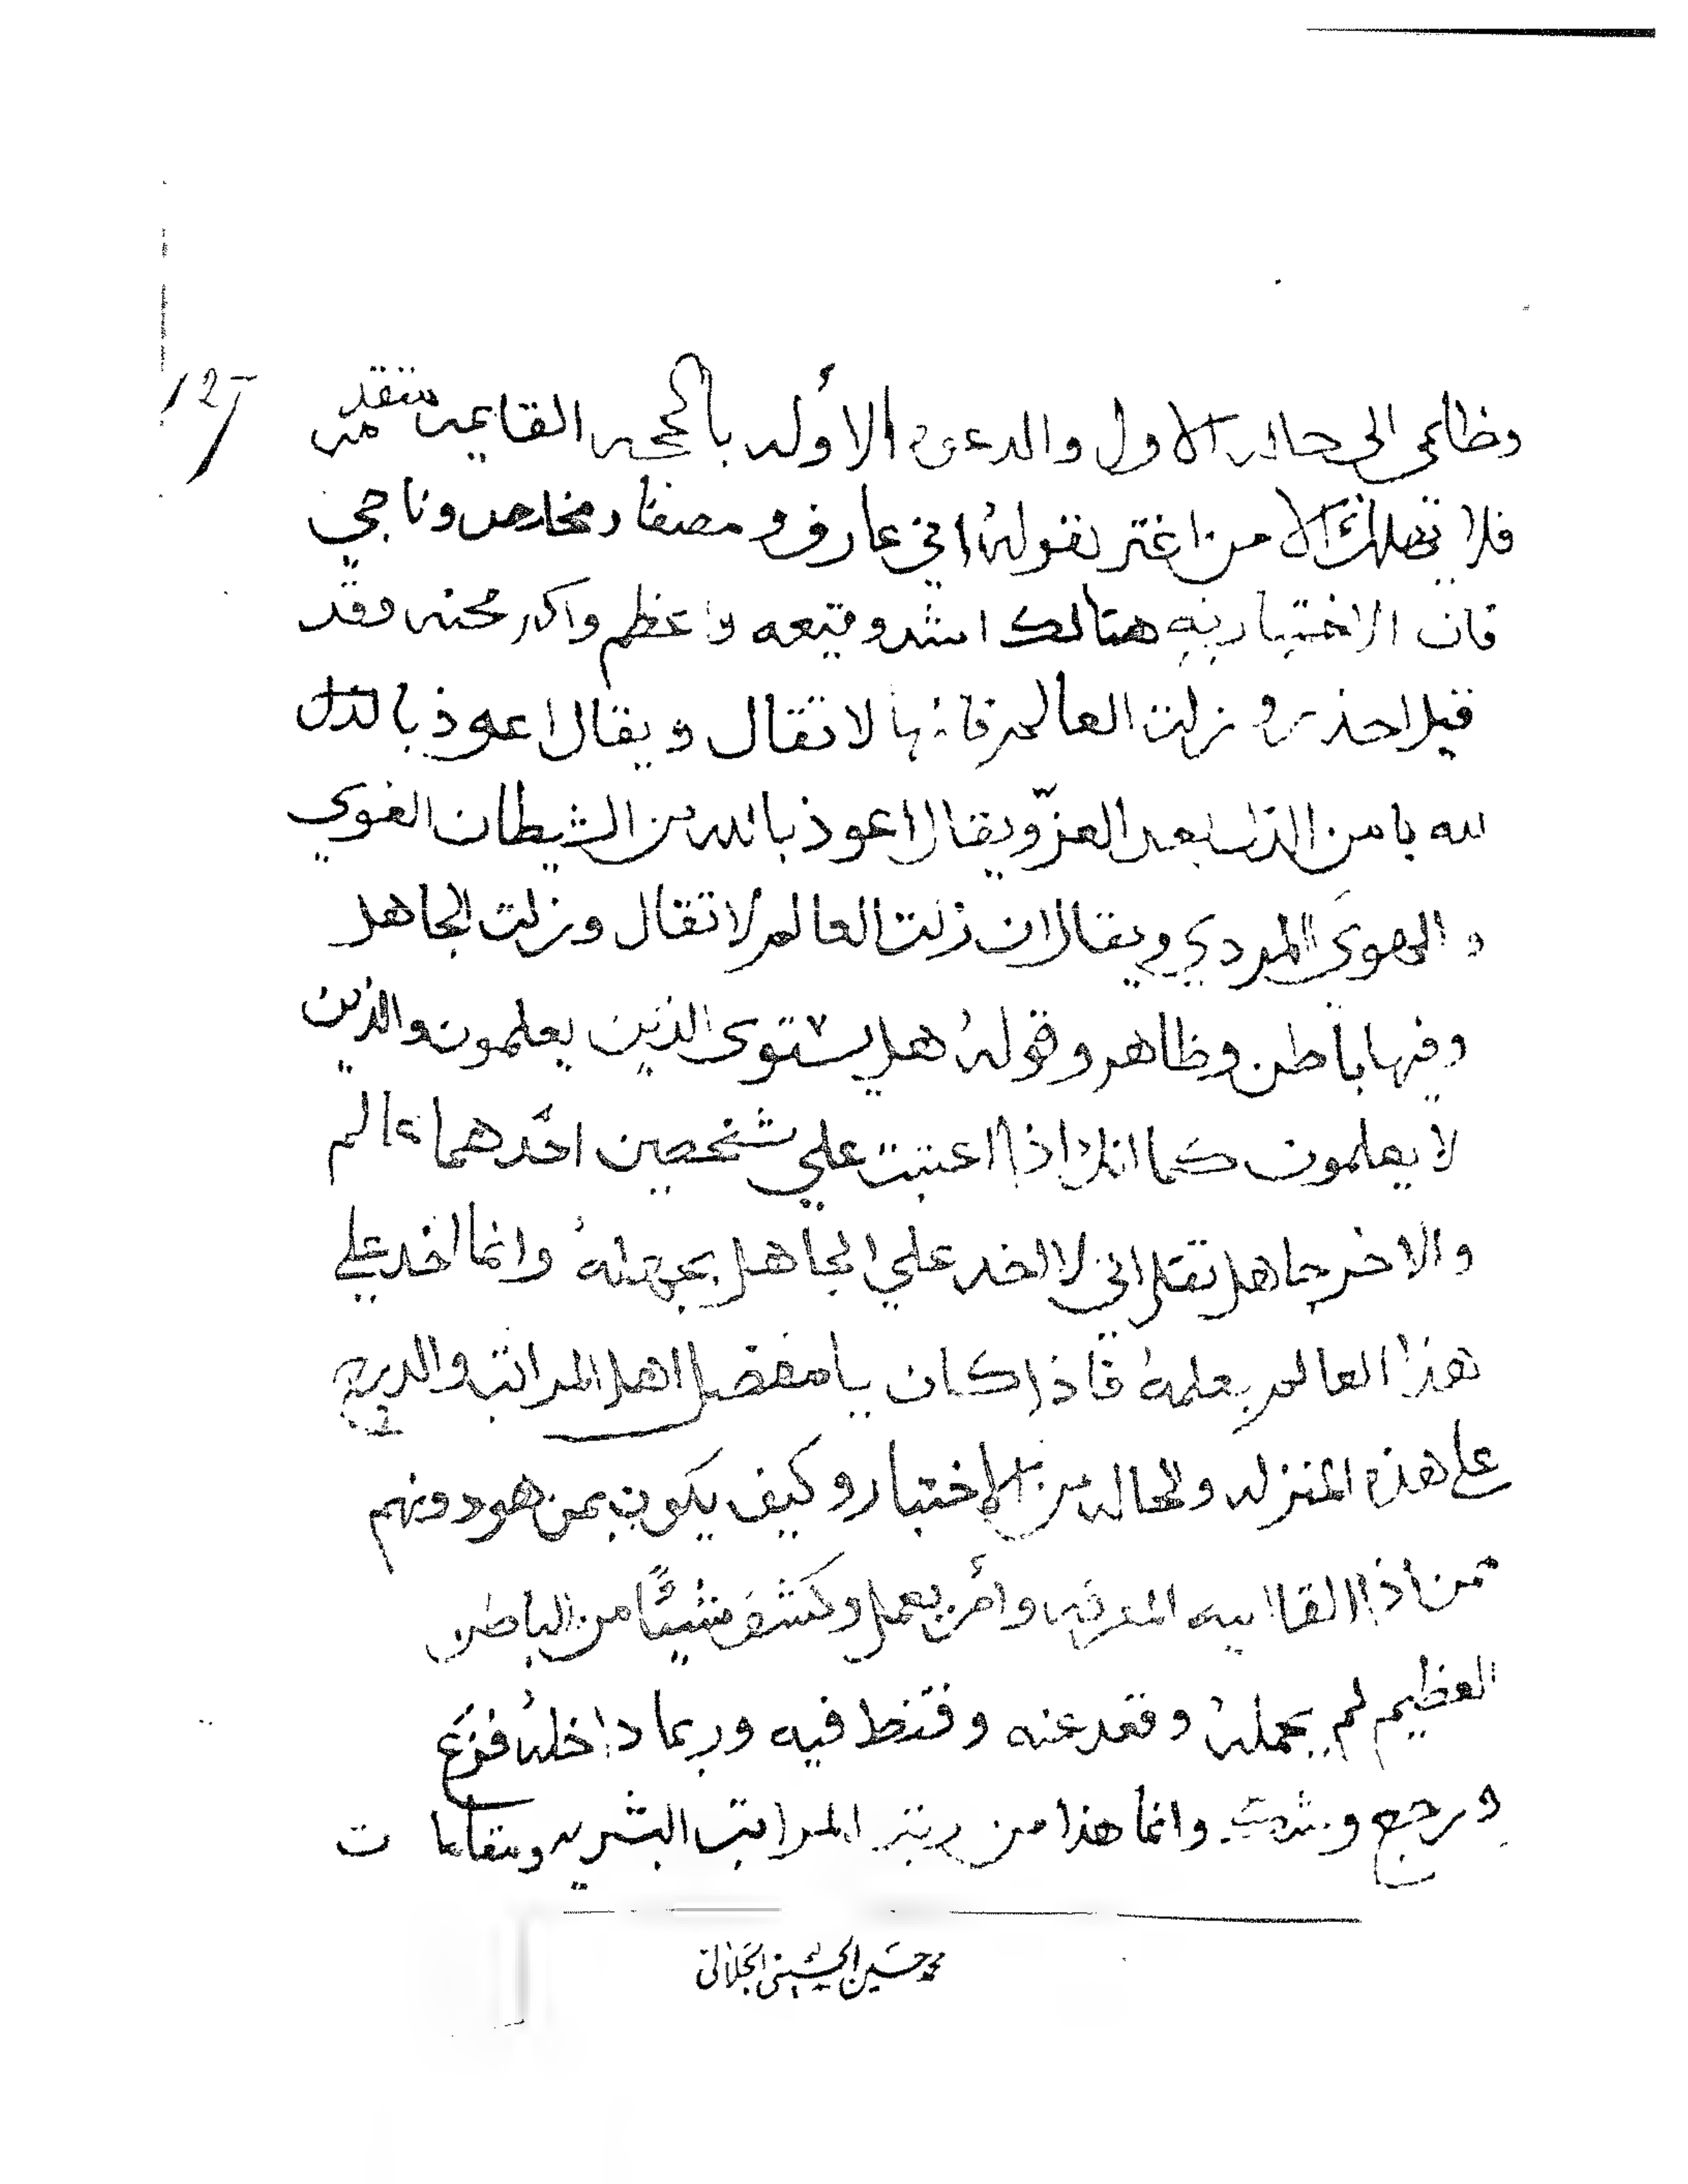 127
وظاعى الى حاله الاول والدعوه الاوله بالحجه القايمه
فلا تهلك الا من اغتر بقوله اني عارف و مصفا ومخلص وناجي
فان الاختباريه هنالك اشد وقيعه واعظم واكبر محنه وقد
قيل احذرو زلت العالم فانها لا تقال و يقال اعوذ بالذل
لله يا من الذل بعد العز ويقال اعوذ بالله من الشيطان الغوي
و الهوى المردي ويقال ان زلت العالم لا تقال وزلت الجاهل
وفيها باطن وظاهر وقوله هل يستوى الذين يعلمون والذين
لا يعلمون كما انك اذا اعتبت علي شخصين احدهما عالم
والاخر جاهل تقل اني لا اخد علي الجاهل بجهله وانما اخد علي
هذا العالم بعلمه فاذا كان يا مفضل اهل المراتب والدرج
على هذه المنزله والحاله من الاختبار وكيف يكون بمن هو دونهم
ممن اذا القا اليه المعرفه وأمر بعمل وكشف شيئًا من الباطن
العظيم لم يحمله وقعد عنه وقنط فيه وربما داخله فزع
ورجع و شك وانما هذا من المراتب البشريه ومقامات
محمد حسين الحسيني الجلالي